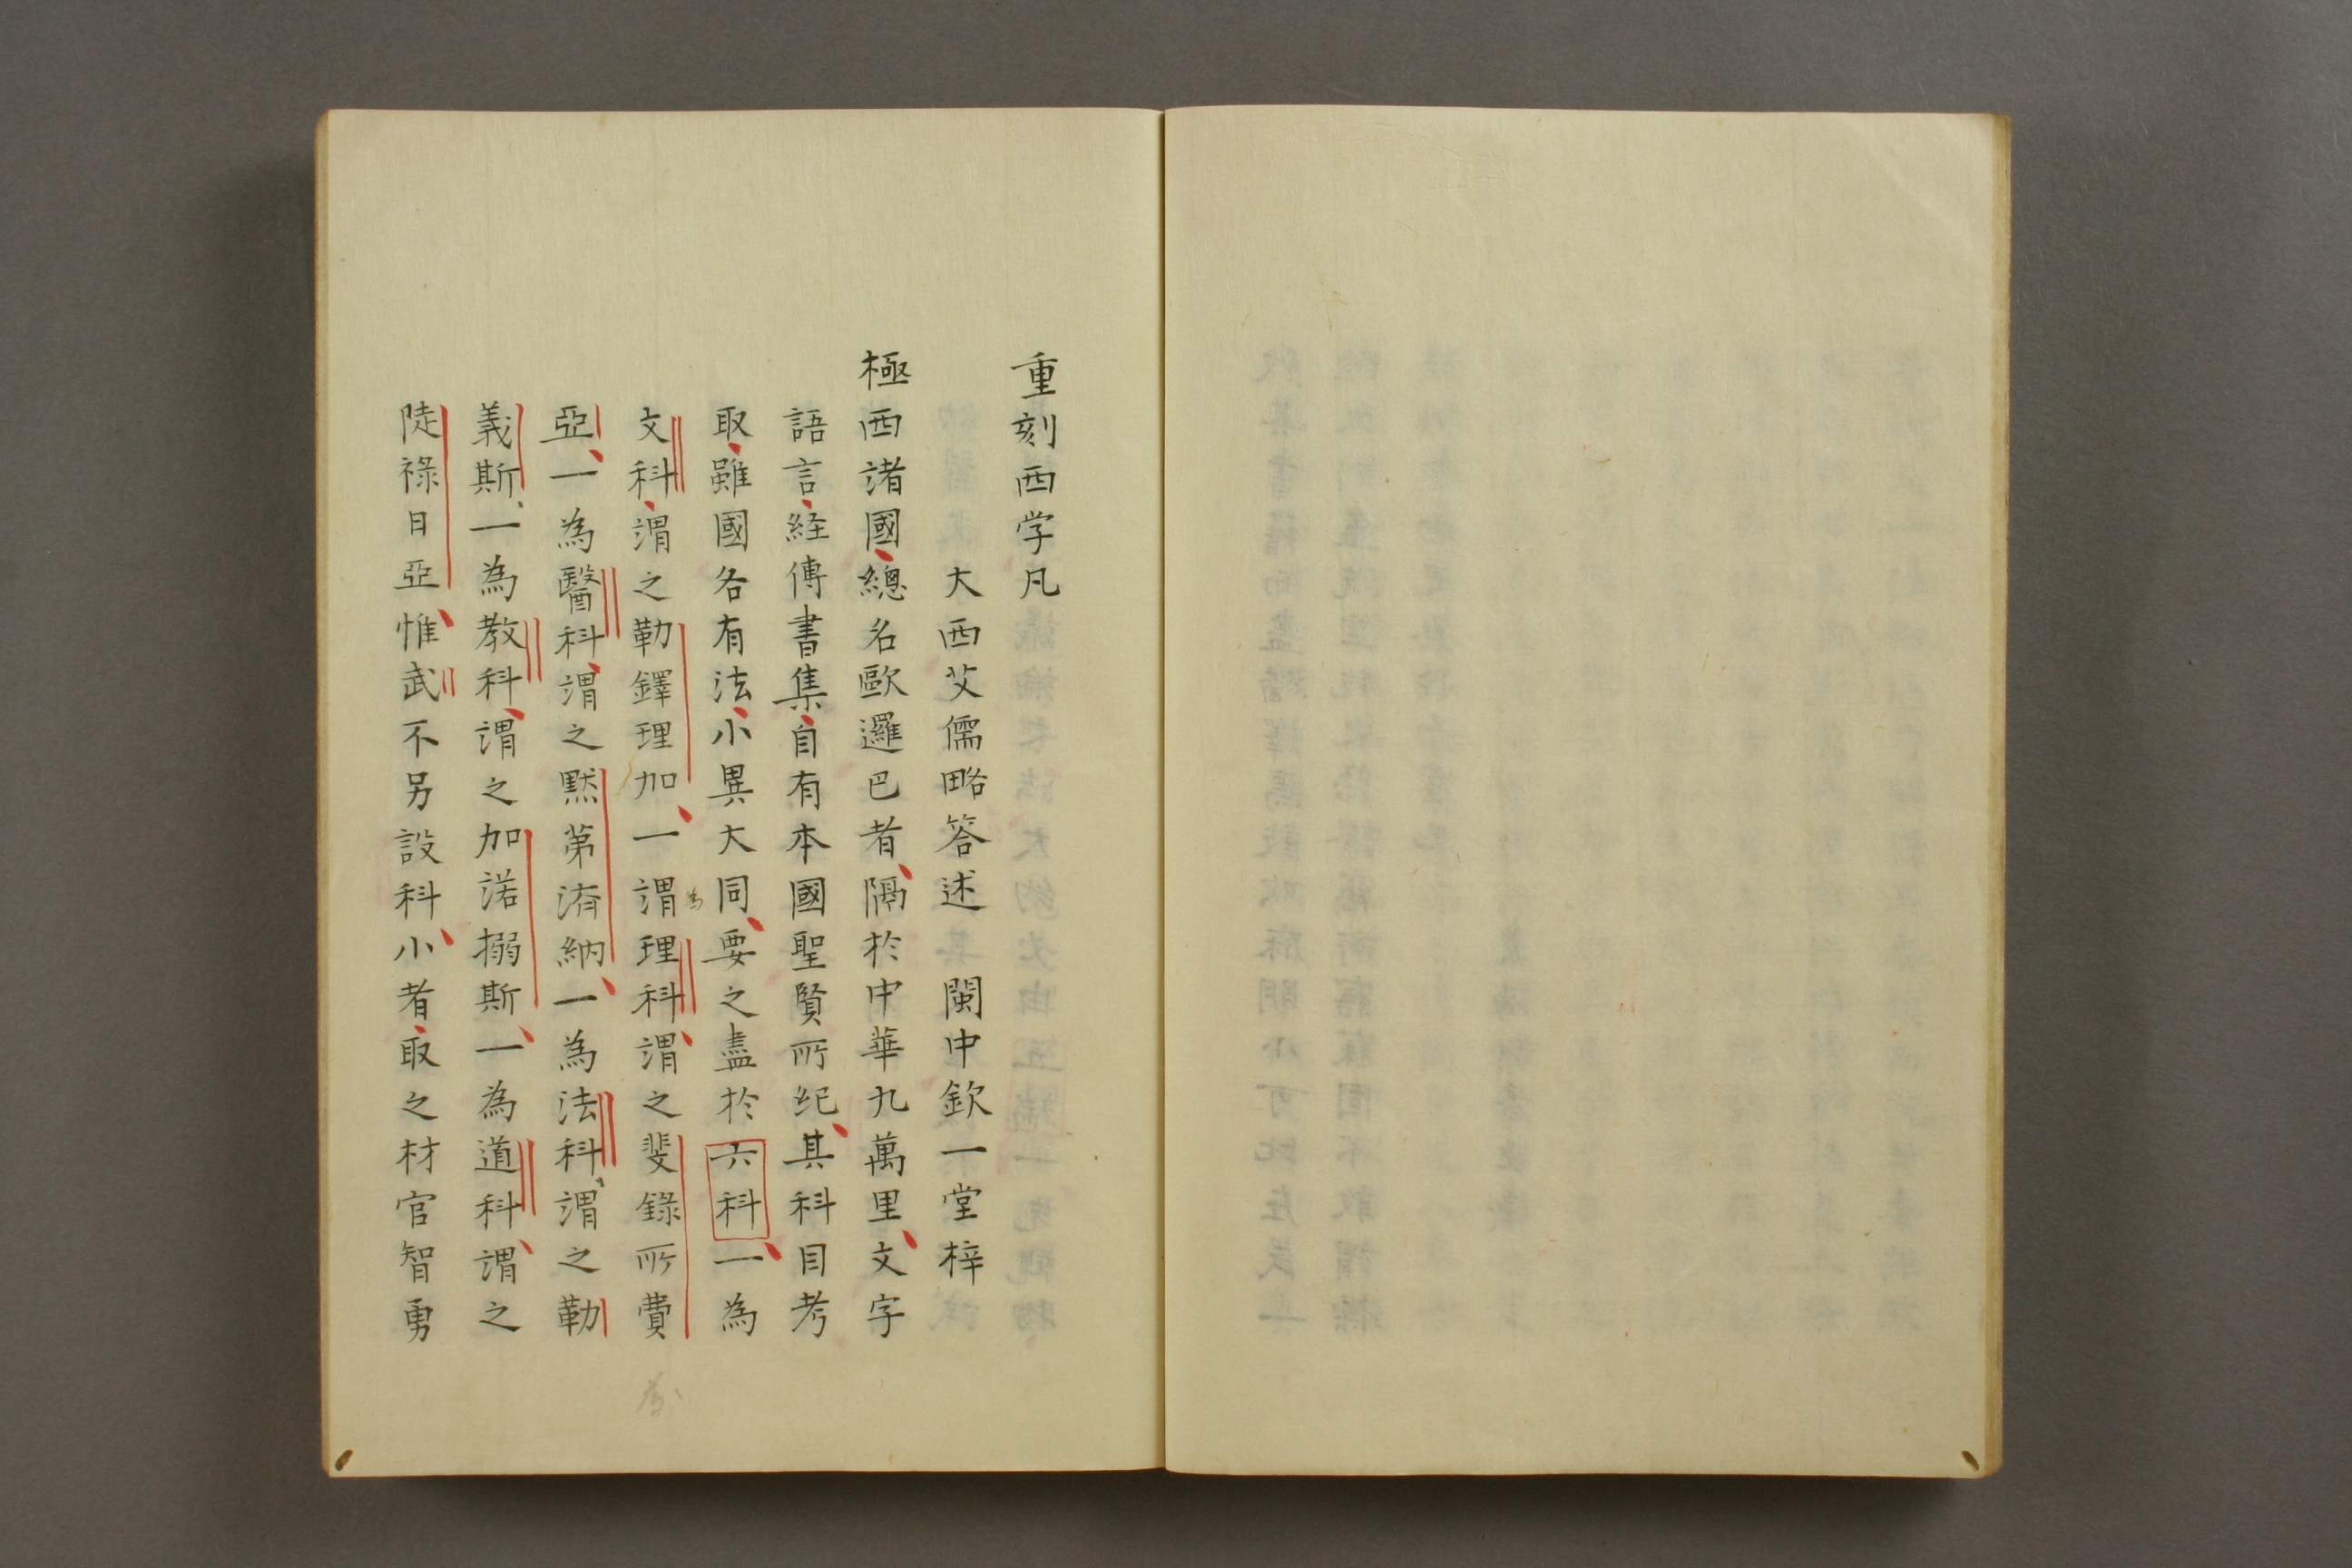 重刻西学凡
大西艾儒略答述　閩中欽一堂梓
極西諸國、總名歐邏巴者、隔於中華九萬里、文字
語言、経傳書集、自有本國聖賢所纪、其科目考
取、雖國各有法、小異大同、要之盡於六科、一為
文科、謂之勒鐸理加、一謂理科、謂之斐錄所費
為
亞、一為醫科、謂之黙第済納、一為法科、謂之勒
義斯、一為教科、謂之加諾搦斯、一為道科、謂之
陡祿日亞、惟武不另設科、小者、取之材官智勇